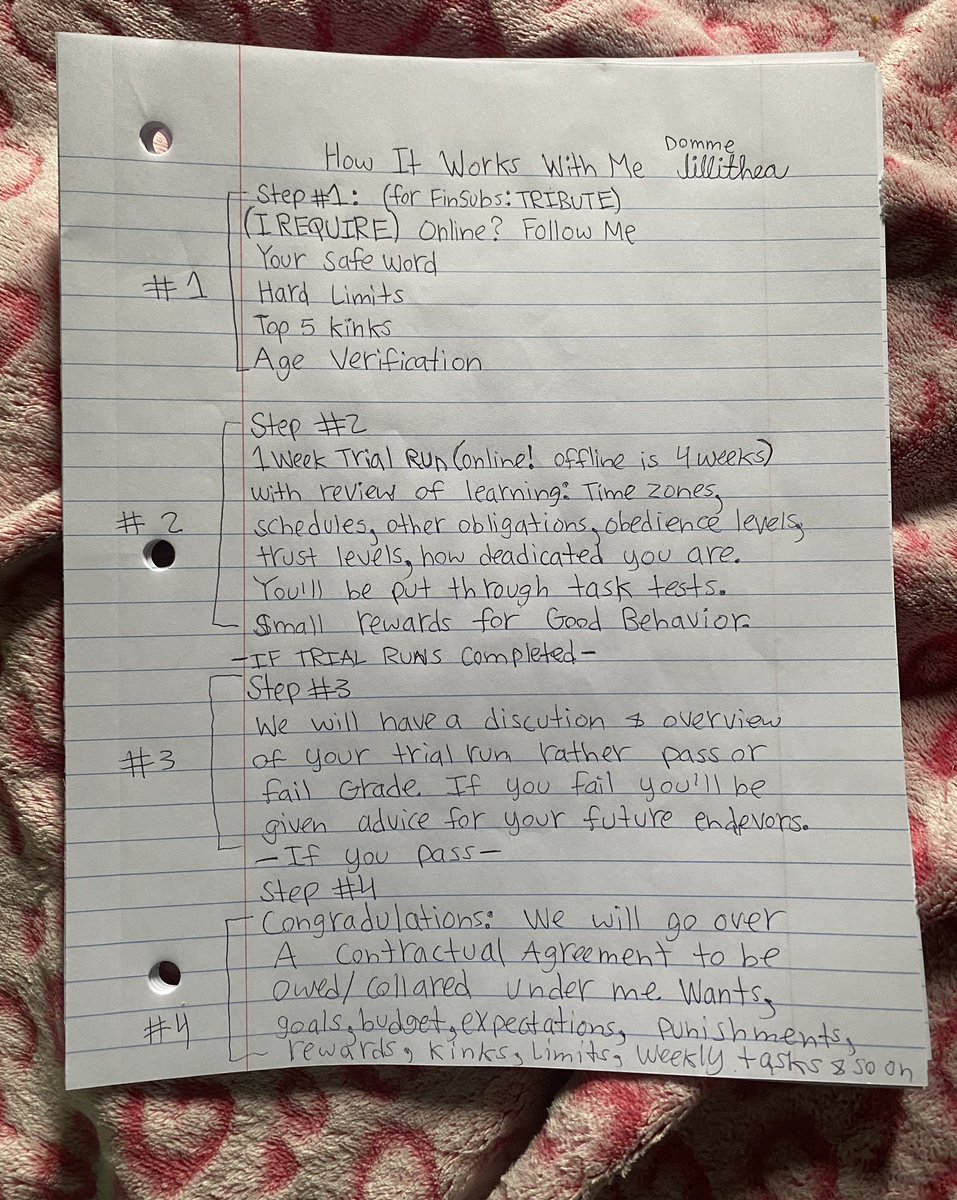 Domme
How It Works With Me lillithea
Step #1: (for FinSubs: TRIBUTE)
(I REQUIRE) Online? Follow Me
Your safe word
#1
Hard Limits
Top 5 kinks
Age Verification
Step #2
1 Week Trial Run (online! offline is 4 weeks)
with review of learning: Time zones,
#2
schedules, other obligations, obedience levels,
trust levels, how deadicated you are.
You'll be put through task tests.
Small rewards for Good Behavior.
-IF TRIAL RUNS Completed-
Step #3
We will have a discution & overview
#3
of your trial run rather pass or
fail Grade. If you fail you'll be
given advice for your future endevors.
-If you pass-
Step #4
Congradulations: We will go over
A Contractual Agreement to be
owed/collared under me Wants,
#4
goals, budget, expectations, punishments,
rewards, kinks, limits, weekly tasks & so on